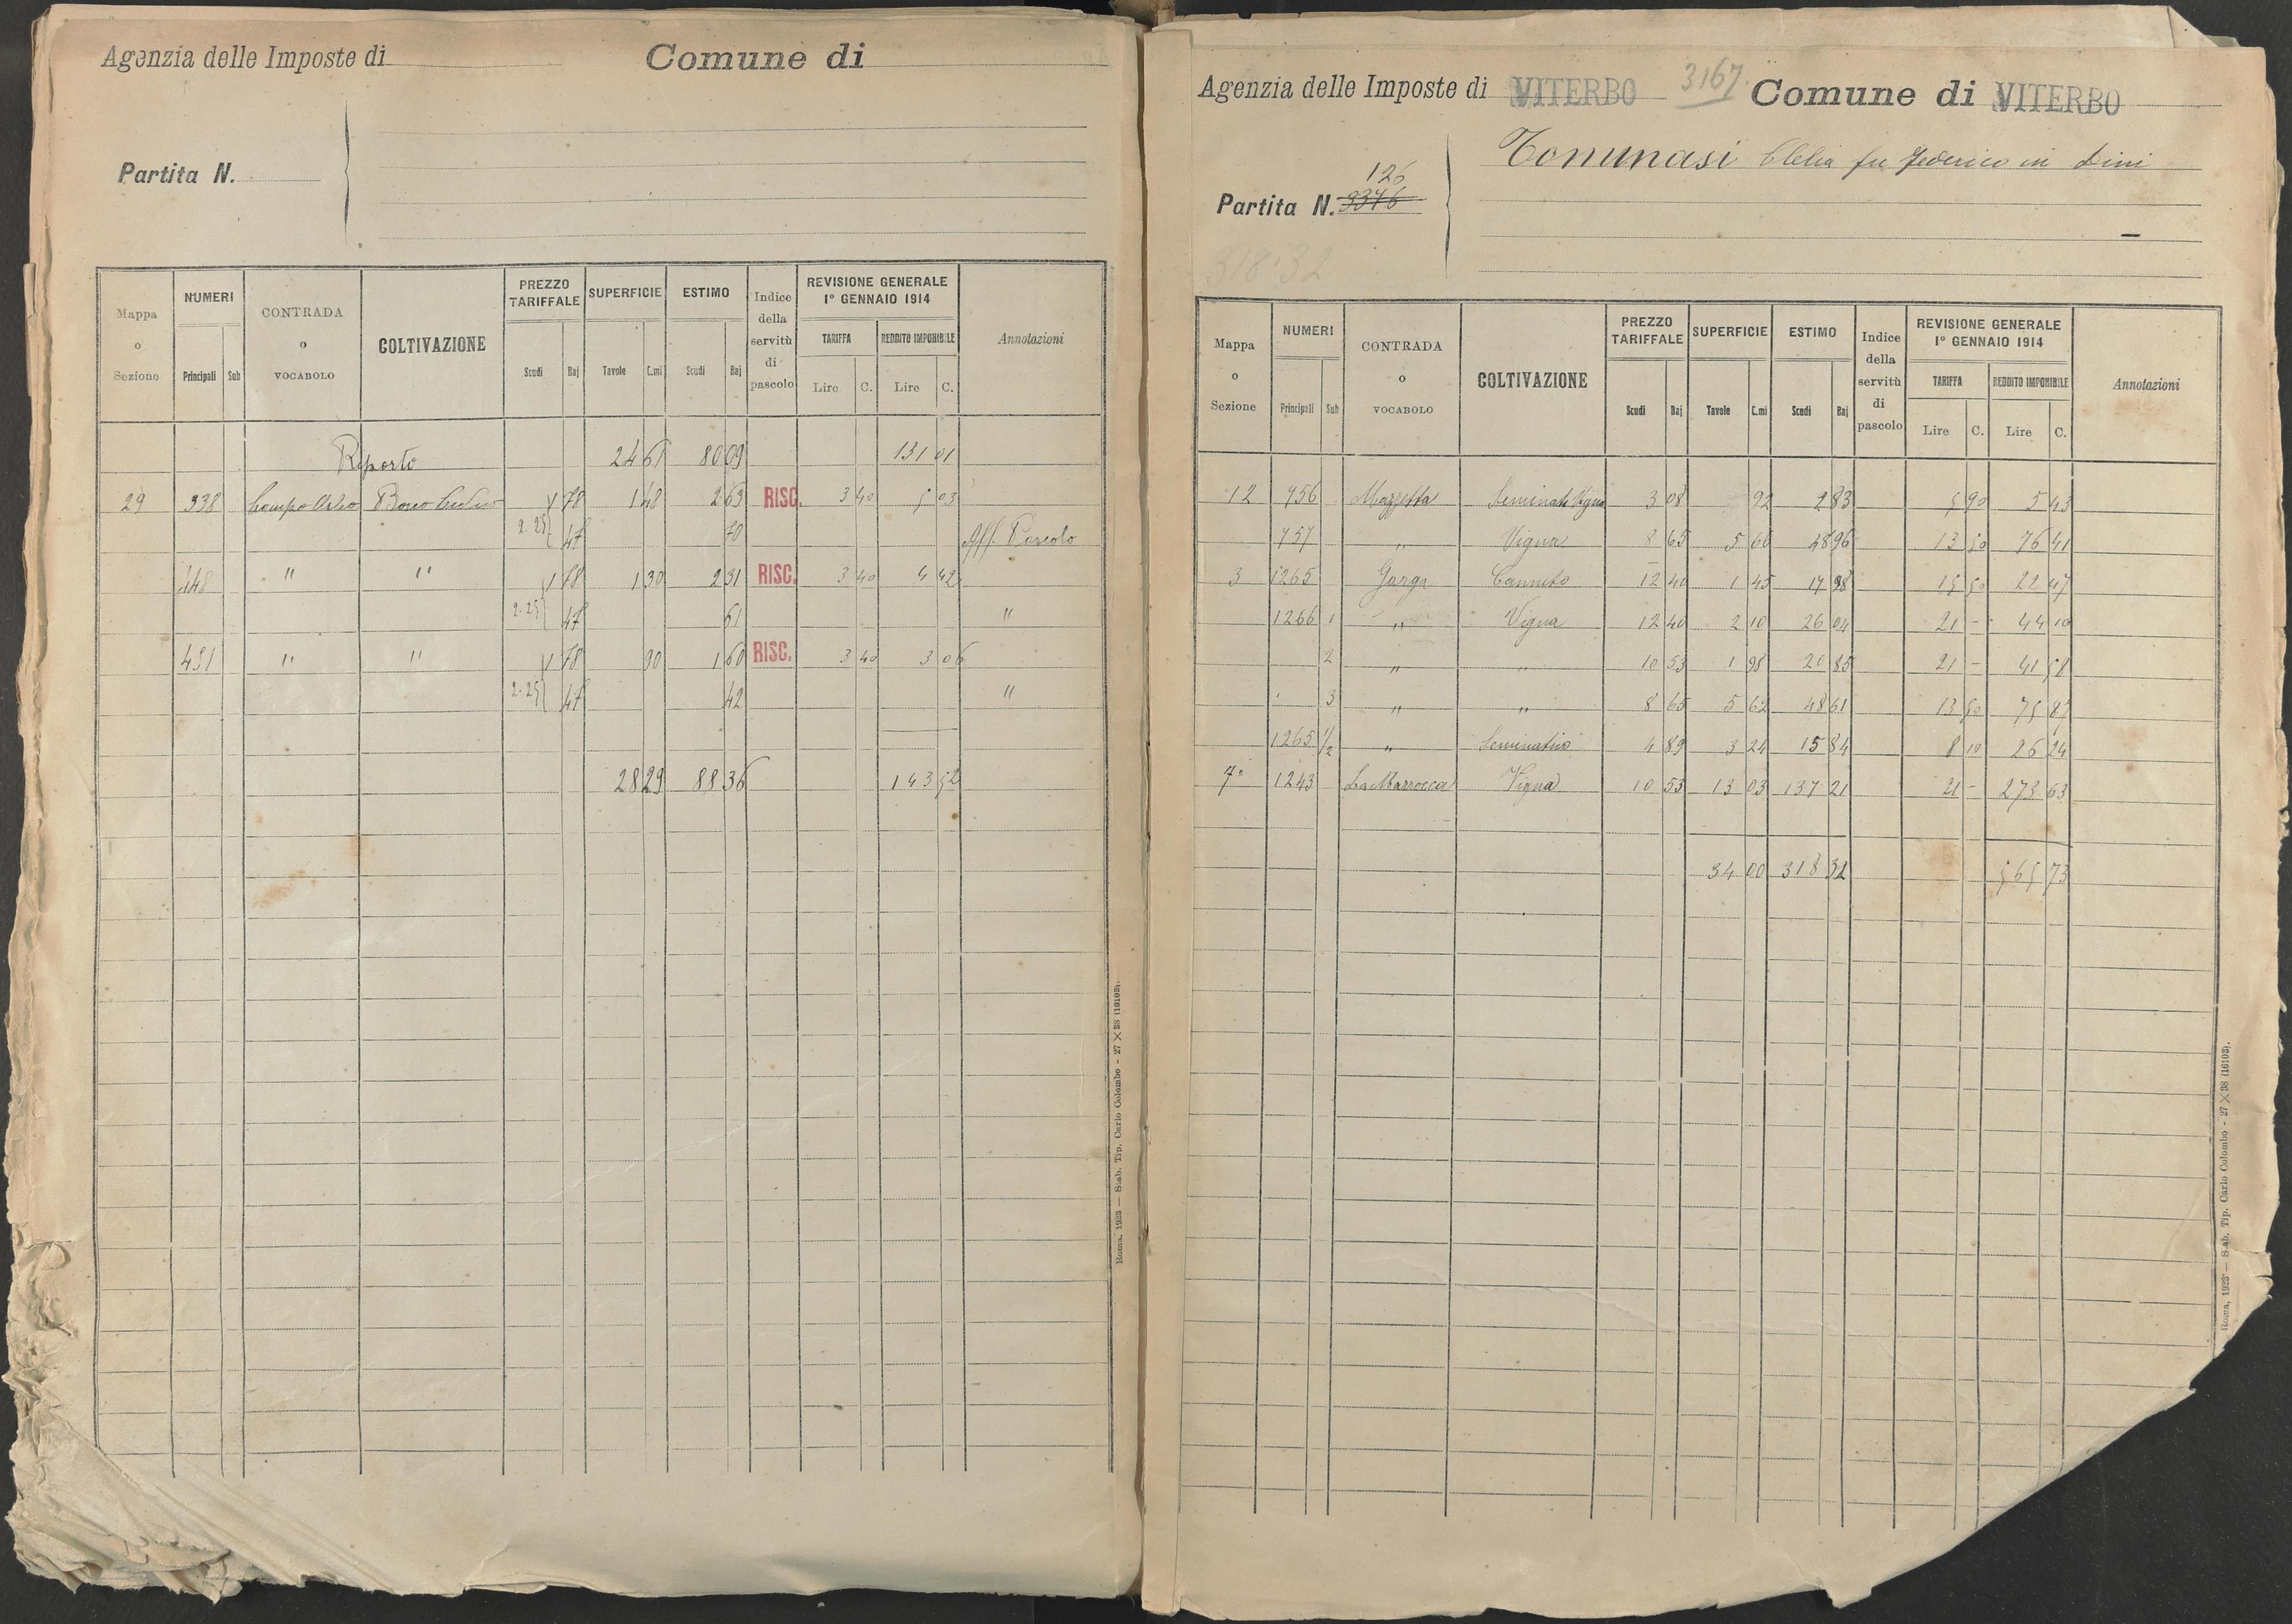 Agenzia delle Imposte di Comune di
Partita N.
Mappa o Sezione NUMERI Principali Sub CONTRADA o VOCABOLO COLTIVAZIONE PREZZO TARIFFALE Scudi Baj SUPERFICIE Tavole C.mi ESTIMO Scudi Baj Indice della servitù di pascolo REVISIONE GENERALE 1° GENNAIO 1914 TARIFFA Lire C. REDDITO IMPONIBILE Lire C. Annotazioni
Riporto 24 61 80 09 131 01
29 338 Bosco Ceduo 1 78 1 48 2 63 RISC. 3 40 5 03
2.25 47 70 Aff. Pascolo
448 " " 1 78 1 30 2 31 RISC. 3 40 4 42
2.25 47 61 "
451 " " 1 78 90 1 60 RISC. 3 40 3 06
2.25 47 42 "
28 29 88 36 143 52
Roma, 1923 — Stab. Tip. Carlo Colombo - 27 × 38 (16103).
Agenzia delle Imposte di VITERBO 3167 Comune di VITERBO
Tommasi Clelia fu Federico in Dini
126
Partita N. 3346
318.32
Mappa o Sezione NUMERI Principali Sub CONTRADA o VOCABOLO COLTIVAZIONE PREZZO TARIFFALE Scudi Baj SUPERFICIE Tavole C.mi ESTIMO Scudi Baj Indice della servitù di pascolo REVISIONE GENERALE 1° GENNAIO 1914 TARIFFA Lire C. REDDITO IMPONIBILE Lire C. Annotazioni
12 756 Mazzetta Seminat. Vigna 3 08 92 2 83 5 90 5 43
757 " Vigna 8 65 5 66 48 96 13 50 76 41
3 1265 Garga Canneto 12 40 1 45 17 98 15 50 22 47
1266 1 " Vigna 12 40 2 10 26 04 21 - 44 10
2 " " 10 53 1 98 20 85 21 - 41 58
3 " " 8 65 5 62 48 61 13 50 75 87
1265 1/2 " Seminativo 4 89 3 24 15 84 8 10 26 24
7a 1243 La Marrocca Vigna 10 53 13 03 137 21 21 - 273 63
34 00 318 32 565 73
Roma, 1923 — Stab. Tip. Carlo Colombo - 27 × 38 (16103).